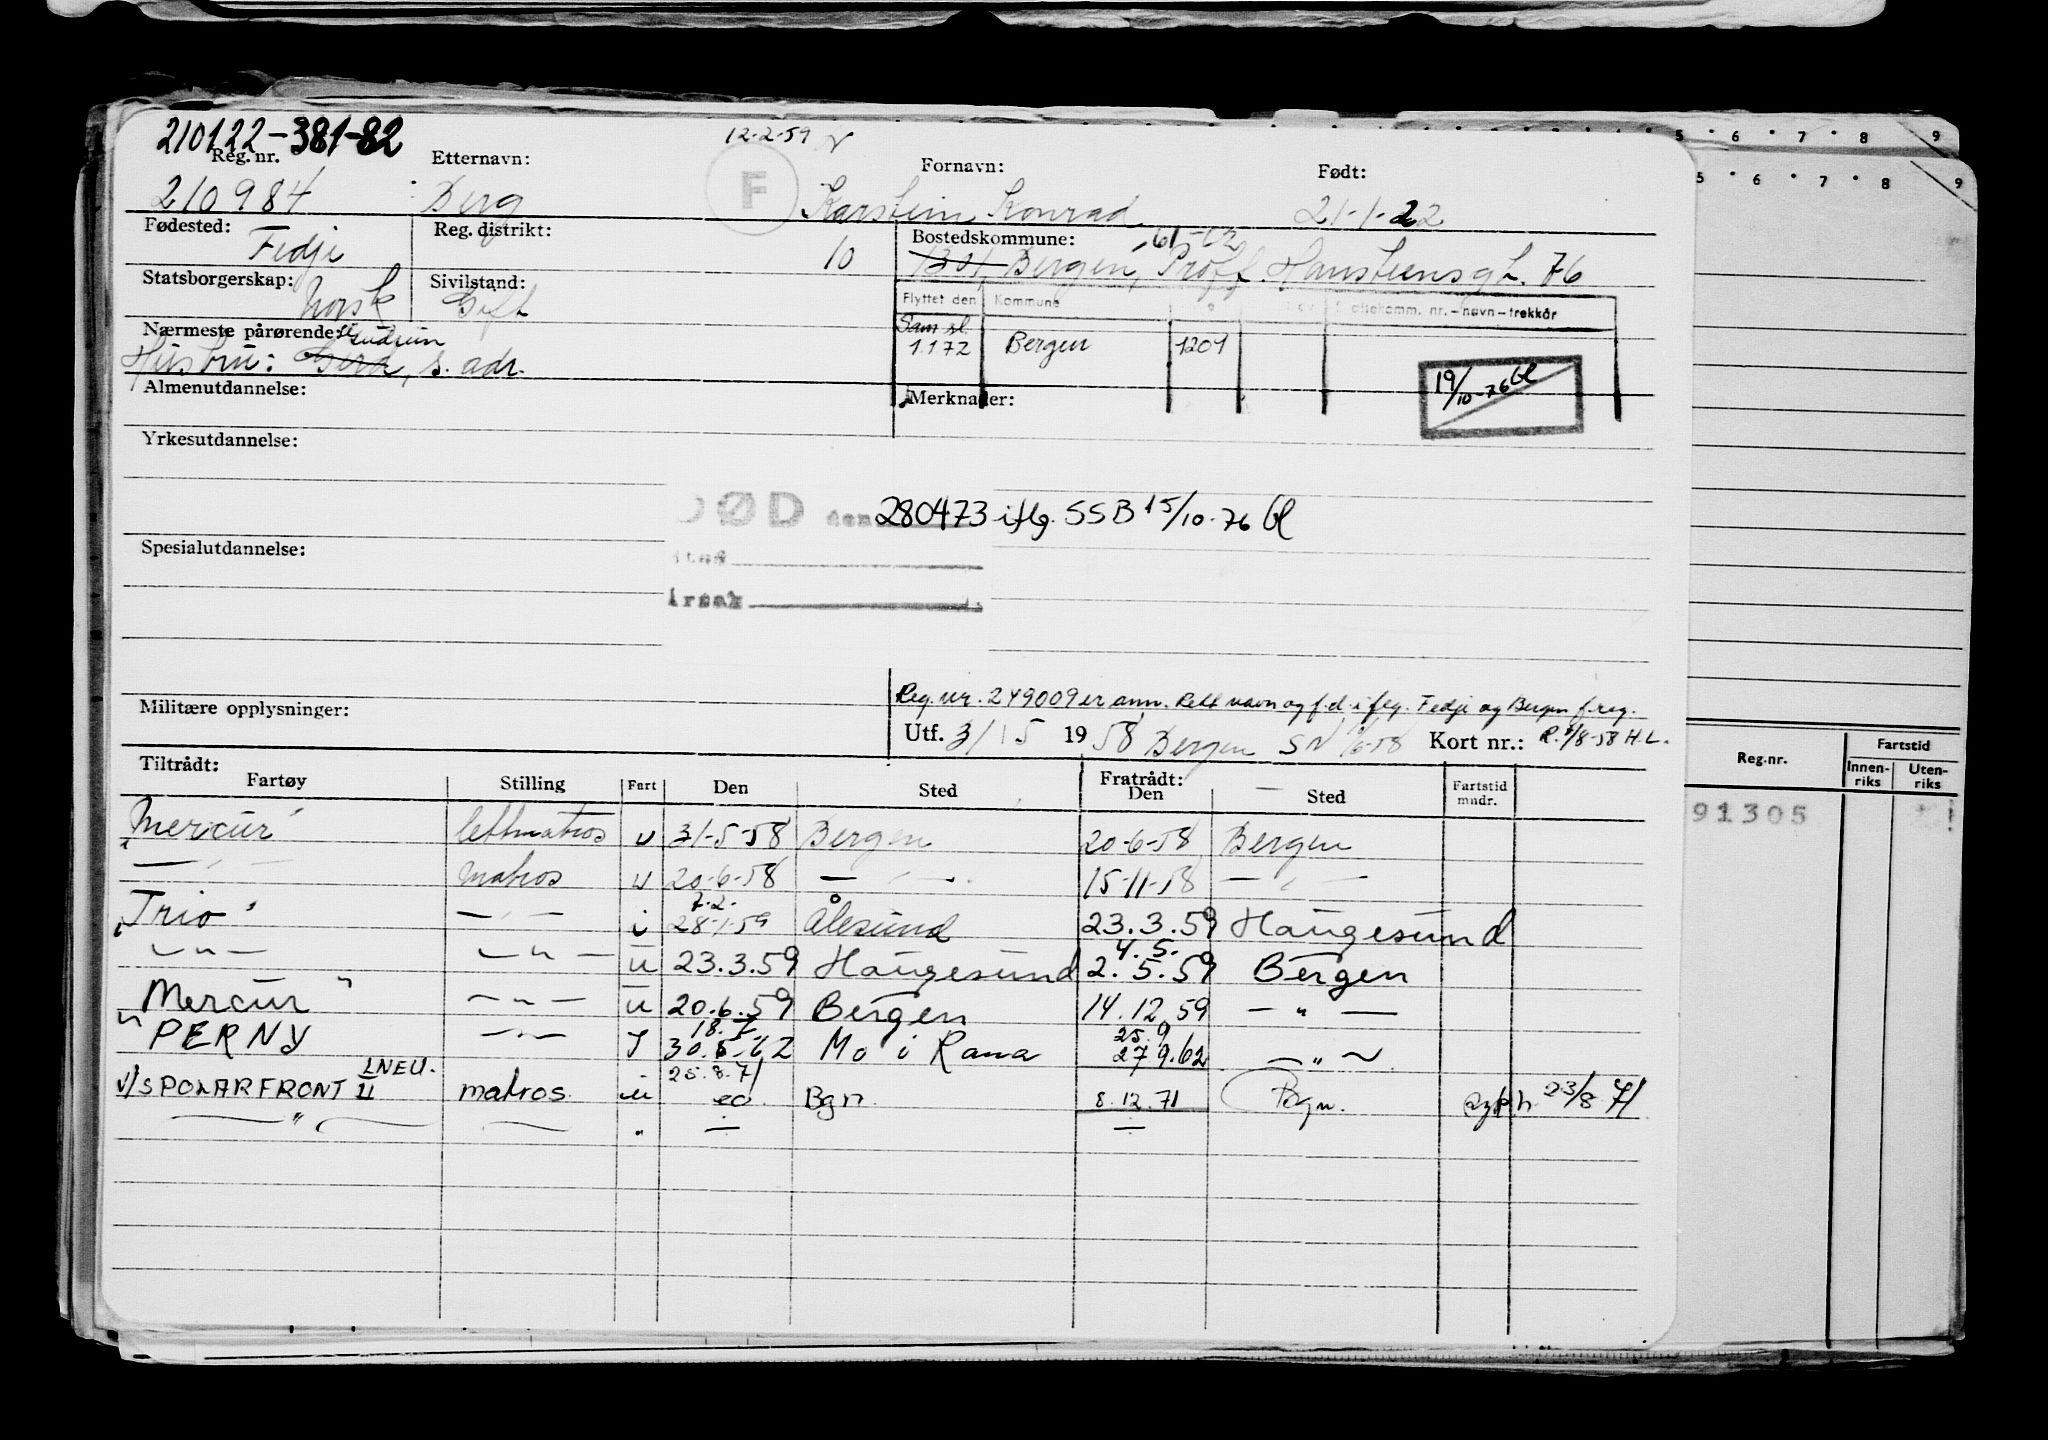 210122-381-82
12-2-59
Reg.nr. Etternavn: Fornavn: Født:
210984 Berg F Karstein Konrad 21-1-22
Fødested: Fedje Reg. distrikt: 10 Bostedskommune: 61-62
1301, Bergen, Proff. Hansteensgt. 76
Statsborgerskap: Norsk Sivilstand: Gift
Flyttet den Kommune Skattekomm. nr.-navn-trekkår
Nærmeste pårørende: Gudrun
Hustru: Gerd, s. adr.
Sam sl. 1.1 72 Bergen 1201
19/10-76 Gl
Almenutdannelse: Merknader:
Yrkesutdannelse:
DØD den 280473 iflg. SSB 15/10-76 Gl
Spesialutdannelse:
sted
årsak
Reg.nr. 249009 er ann. Rett navn og f.d. iflg. Fedje og Bergen f.reg.
Militære opplysninger: Utf. 31/5 1958 Bergen SN 1/6-58 Kort nr.: R. 1/8-58 H.L.
Tiltrådt: Fratrådt:
Fartøy Stilling Fart Den Sted Den Sted Fartstid mndr.
Mercur lettmatros u 31-5-58 Bergen 20-6-58 Bergen
— " — matros u 20-6-58 — " — 15-11-58 — " —
7.2.
Trio — " — i 28-1-59 Ålesund 23.3.59 Haugesund
4.5.
— " — — " — u 23.3.59 Haugesund 2.5.59 Bergen
Mercur — " — u 20.6.59 Bergen 14.12.59 — " —
18.7. 25.9
PERNY — " — I 30.5-62 Mo i Rana 27 9.62 — " —
LNEU. 25.8.71
V/S POLARFRONT II matros. u Bgn. 8.12.71 Bgn. 23/8 71
— " —
5 6 7 8 9
5 6 7 8 9
Reg.nr. Fartstid
Innenriks Utenriks
91305